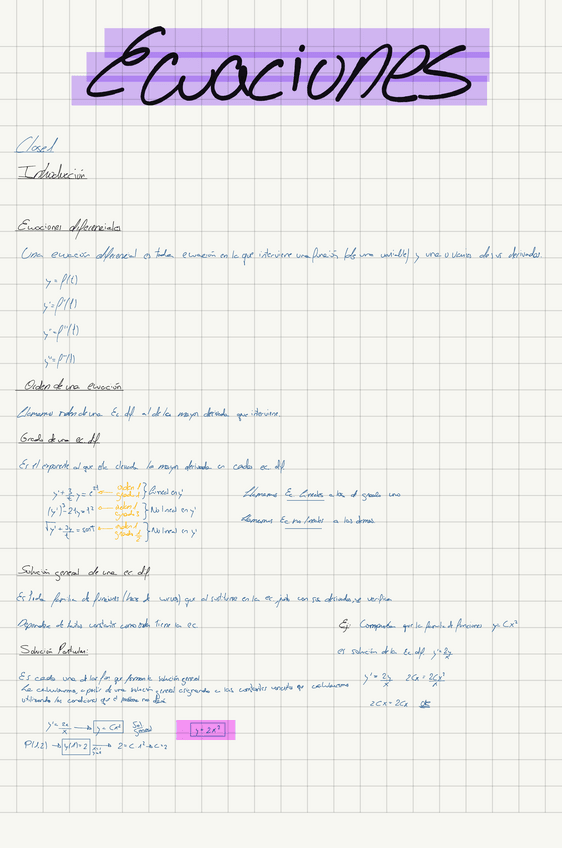 Ecuaciones
Clase 1
Introducción
Ecuaciones diferenciales
Una ecuación diferencial es toda ecuación en la que interviene una función (de una variable) y una o varias de sus derivadas.
y = f(t)
y' = f'(t)
y'' = f''(t)
Orden de una ecuación
Llamamos orden de una Ec dif al de la mayor derivada que interviene.
Grado de una ec dif
Es el exponente al que está elevada la mayor derivada en cada ec dif
y' + 3/t y = e^2t orden 1 grado 1 Lineal en y'
(y')³ - 2ty = t² orden 1 No lineal en y'
√y' = 3y/t = cos t orden 1 grado 1/2 No lineal en y'
Llamamos Ec Lineales a las de grado uno
Llamamos Ec no lineales a las demás
Solución general de una ec dif
Es toda familia de funciones (haz de curvas) que al sustituirse en la ec junto con sus derivadas, se verifica
Dependerá de tantas constantes como orden tiene la ec.
Ej: Comprobar que la familia de funciones y = Cx²
es solución de la Ec dif y' = 2y/x
y' = 2y/x 2Cx = 2Cx²/x
2Cx = 2Cx
Solución Particular:
Es cada una de las fun que forman la solución general
La calculamos a partir de una solución general asignando a las constantes un valor que calculamos
utilizando las condiciones que el problema nos dará
y' = 2y/x → y = Cx² Sol general
P(1,2) → y(1) = 2 → 2 = C·1² → C = 2
y = 2x²